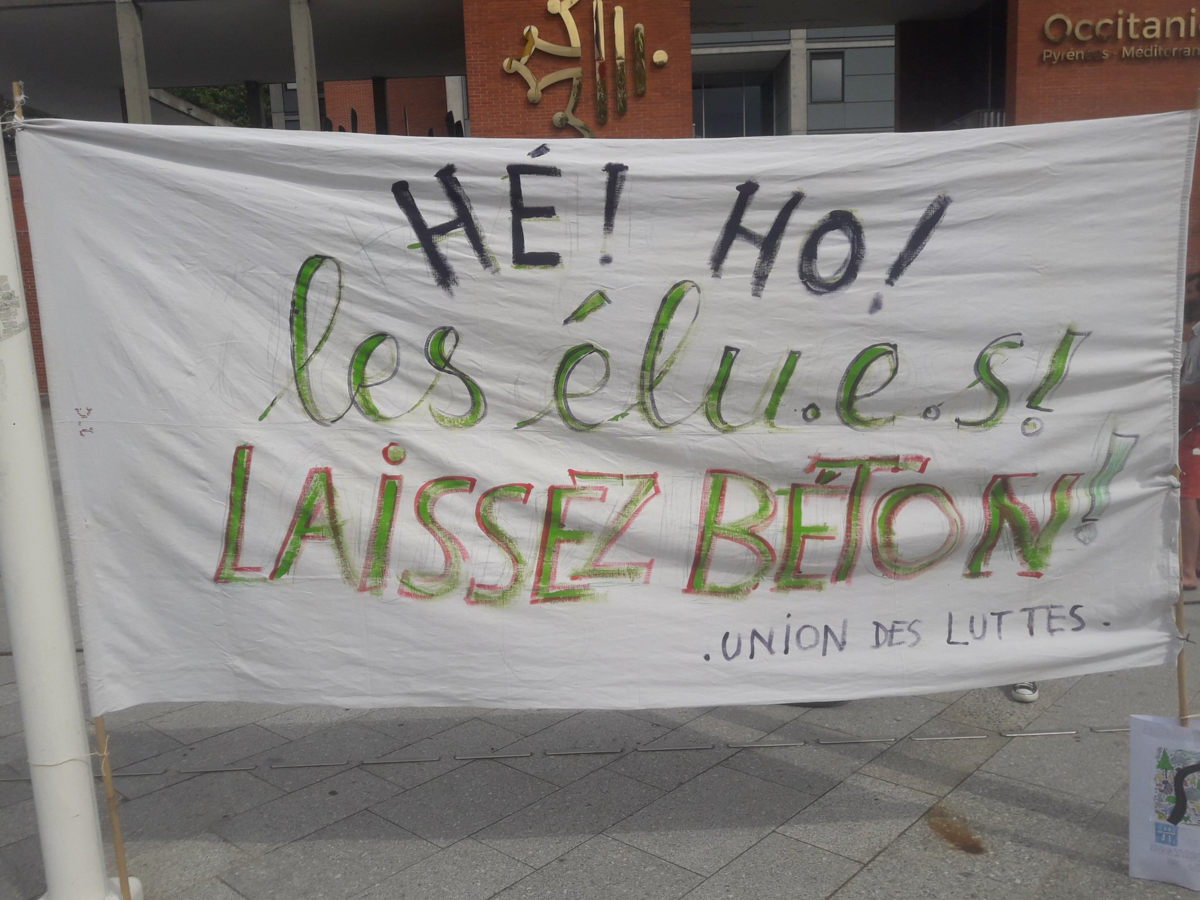 Occitani
Pyrénées - Méditerran
HÉ! HO!
les élu.e.s!
LAISSEZ BÉTON!
.UNION DES LUTTES.